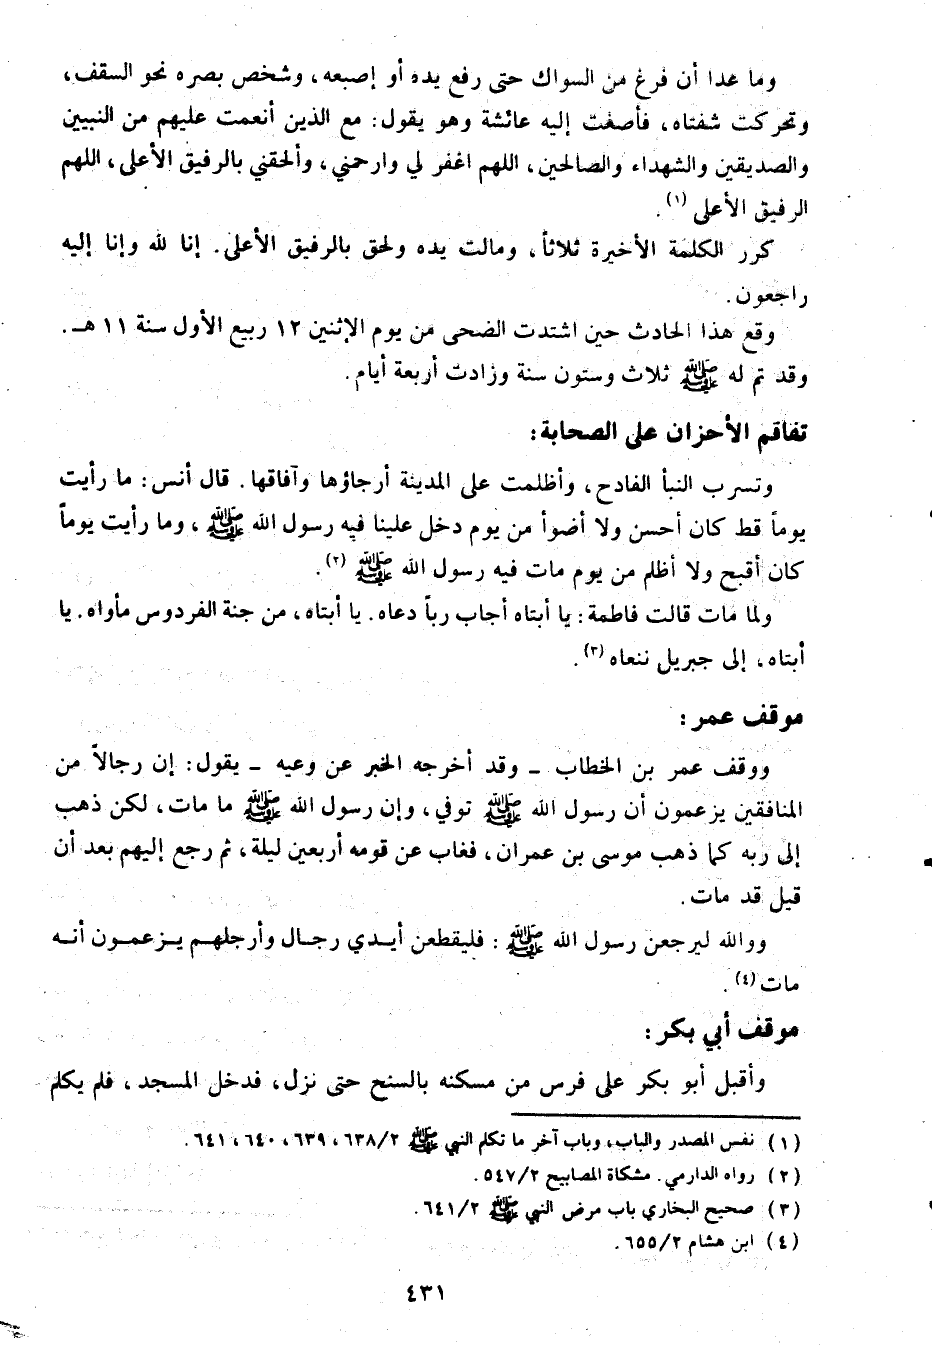 وما عدا أن فرغ من السواك حتى رفع يده أو إصبعه، وشخص بصره نحو السقف،
وتحركت شفتاه، فأصغت إليه عائشة وهو يقول: مع الذين أنعمت عليهم من النبيين
والصديقين والشهداء والصالحين، اللهم اغفر لي وارحمني، وألحقني بالرفيق الأعلى، اللهم
الرفيق الأعلى (١).
كرر الكلمة الأخيرة ثلاثاً، ومالت يده ولحق بالرفيق الأعلى. إنا لله وإنا إليه
راجعون.
وقع هذا الحادث حين اشتدت الضحى من يوم الإثنين ١٢ ربيع الأول سنة ١١ هـ.
وقد تم له ﷺ ثلاث وستون سنة وزادت أربعة أيام.
تفاقم الأحزان على الصحابة:
وتسرب النبأ الفادح، وأظلمت على المدينة أرجاؤها وآفاقها. قال أنس: ما رأيت
يوماً قط كان أحسن ولا أضوأ من يوم دخل علينا فيه رسول الله ﷺ، وما رأيت يوماً
كان أقبح ولا أظلم من يوم مات فيه رسول الله ﷺ (٢).
ولما مات قالت فاطمة: يا أبتاه أجاب رباً دعاه. يا أبتاه، من جنة الفردوس مأواه. يا
أبتاه، إلى جبريل ننعاه (٣).
موقف عمر:
ووقف عمر بن الخطاب ـ وقد أخرجه الخبر عن وعيه ـ يقول: إن رجالاً من
المنافقين يزعمون أن رسول الله ﷺ توفي، وإن رسول الله ﷺ ما مات، لكن ذهب
إلى ربه كما ذهب موسى بن عمران، فغاب عن قومه أربعين ليلة، ثم رجع إليهم بعد أن
قيل قد مات.
ووالله ليرجعن رسول الله ﷺ: فليقطعن أيـدي رجـال وأرجلهـم يـزعمـون أنـه
مات (٤).
موقف أبي بكر:
وأقبل أبو بكر على فرس من مسكنه بالسنح حتى نزل، فدخل المسجد، فلم يكلم
(١) نفس المصدر والباب، وباب آخر ما تكلم النبي ﷺ ٦٣٨/٢، ٦٣٩، ٦٤٠، ٦٤١.
(٢) رواه الدارمي. مشكاة المصابيح ٥٤٧/٢.
(٣) صحيح البخاري باب مرض النبي ﷺ ٦٤١/٢.
(٤) ابن هشام ٦٥٥/٢.
٤٣١